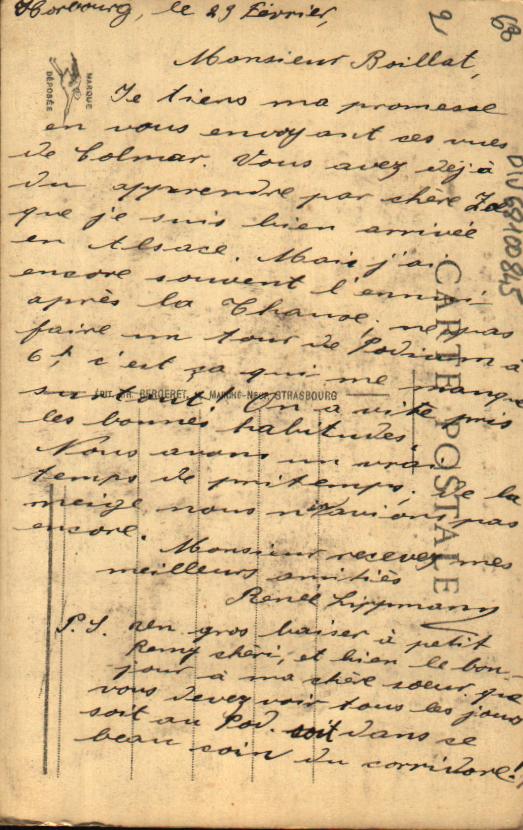 Horbourg, le 29 Février,
2,
68
Monsieur Boillat,
MARQUE
DÉPOSÉE
Je tiens ma promesse
en vous envoyant ces vues
de Colmar. Vous avez déjà
du apprendre par chère
que je suis bien arrivée
en Alsace. Mais j'ai
encore souvent l'ennui
après la Chaux, ne pas
faire un tour de Podium à
6h, c'est ça qui me manque
surtout! On a vite pris
les bonnes habitudes.
Nous avons un vrai
temps de printemps; de la
neige nous n'avions pas
encore.
Monsieur recevez mes
meilleurs amitiés
Renée Lippmann
P.S. un gros baiser à petit
Remy chéri, et bien le bon-
jour à ma chère soeur que
vous devez voir tous les jours
soit au Pod. soit dans se
beau soin du corridore!
CARTE POSTALE
ÉDIT. BERGERET, MARCHÉ-NEUF, STRASBOURG